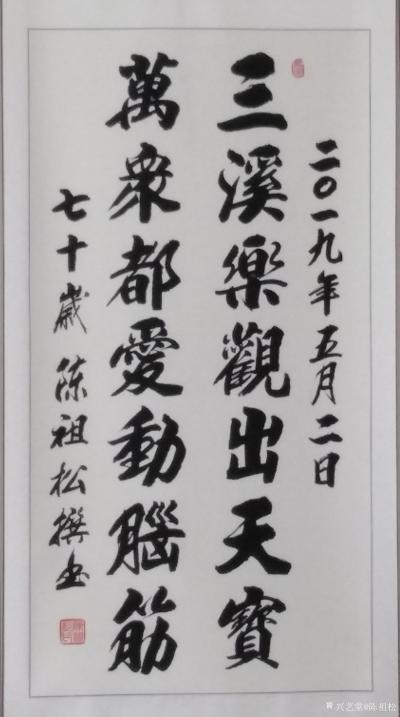 二〇一九年五月二日
三溪樂觀出天寶
萬衆都愛動腦筋
七十歲陈祖松撰书
兴艺堂@陈祖松